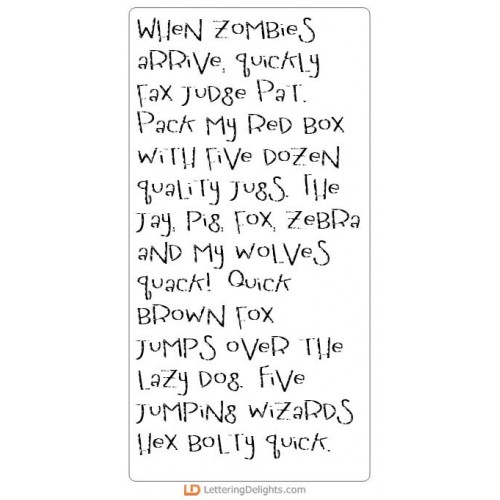 When Zombies
arrive, quickly
fax Judge Pat.
Pack my red box
with five dozen
quality jugs. The
jay, pig, fox, zebra
and my wolves
quack! Quick
brown fox
jumps over the
lazy dog. Five
jumping wizards
hex bolty quick.
LD LetteringDelights.com